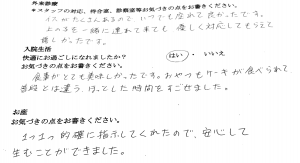 外来診療
＊スタッフの対応、待合室、診察室等お気づきの点をお書きください。
イスがたくさんあるので、いつでも座れて良かったです。
上の子を一緒に連れて来ても優しく対応してもらえて
嬉しかったです。
入院生活
快適にお過ごしになれましたか? はい ・ いいえ
お気づきの点をお書きください。
食事がとても美味しかったです。おやつもケーキが食べられて
普段とは違う、ほっとした時間をすごせました。
お産
お気づきの点をお書きください。
1つ1つ的確に指示してくれたので、安心して
生むことができました。